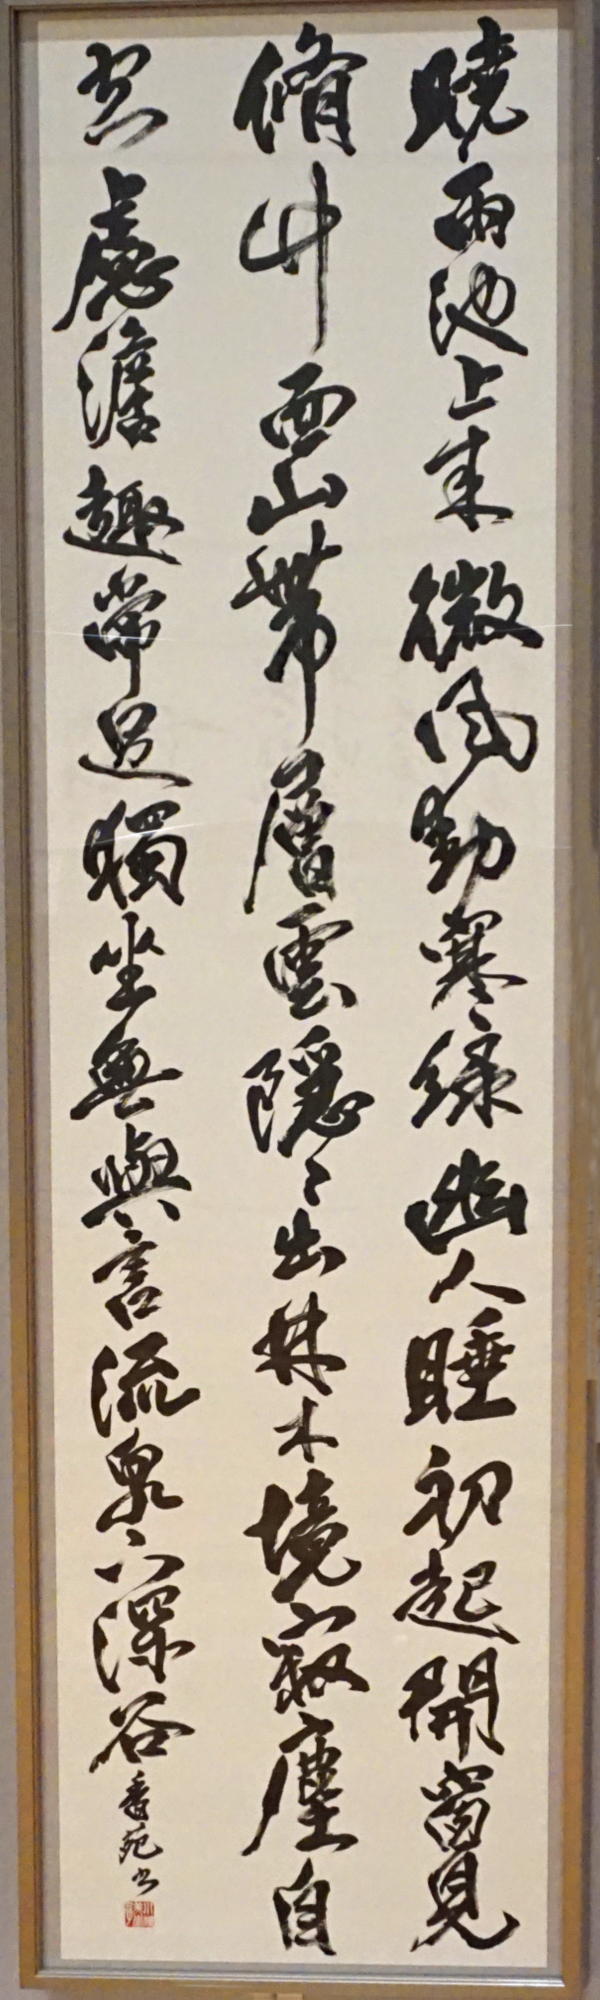 曉雨池上來微風動寒綠幽人睡初起開窗見
脩竹西山帶層雲隱〻出林木境寂塵自
空慮澹趣常足獨坐無與言流泉下深谷
香苑書